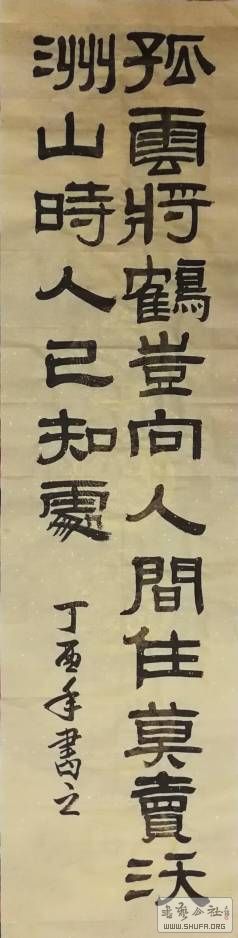 孤雲將鶴豈向人間住莫賣沃
洲山時人已知處
丁酉年書之
书艺公社
WWW.SHUFA.ORG